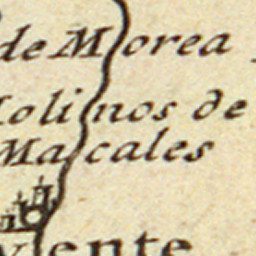 de Morea
Molinos de
Mascales
vente